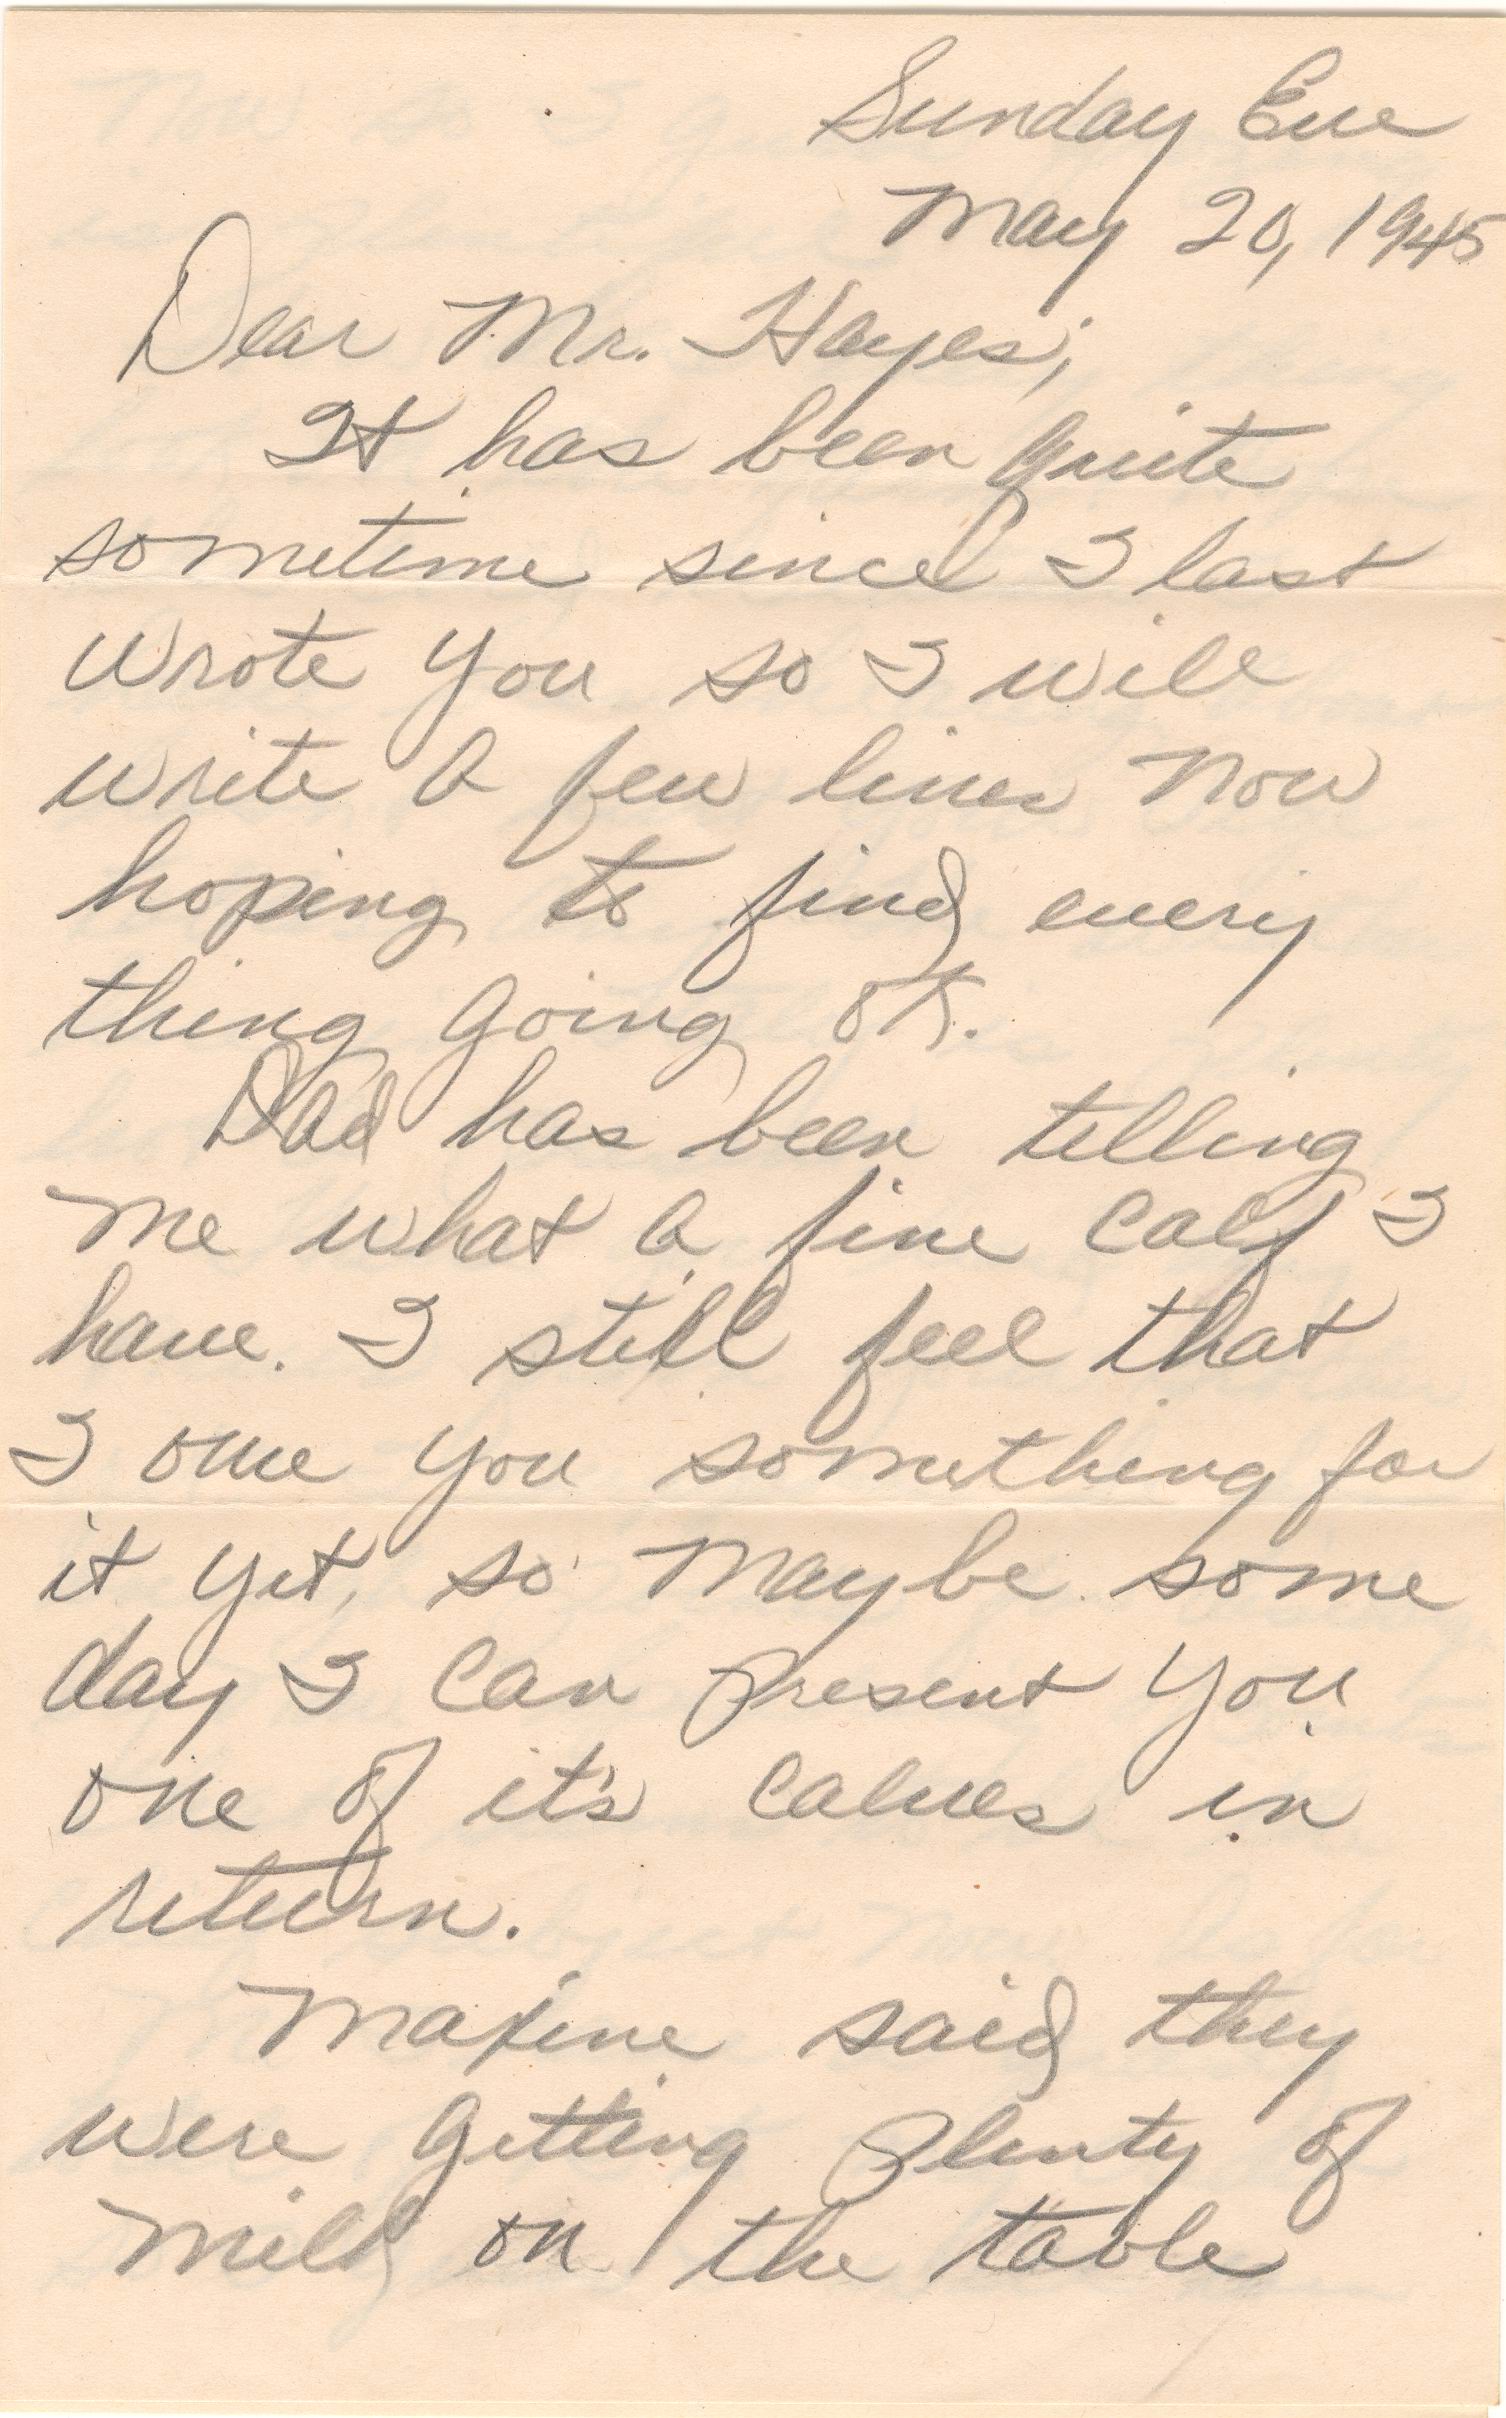 Sunday Eve
May 20, 1945
Dear Mr. Hayes;
It has been quite
sometime since I last
wrote you so I will
write a few lines now
hoping to find every
thing going OK.
Dad has been telling
me what a fine calf I
have. I still feel that
I owe you something for
it yet, so maybe some
day I can present you
one of it's calves in
return.
Maxine said they
were getting plenty of
milk on the table